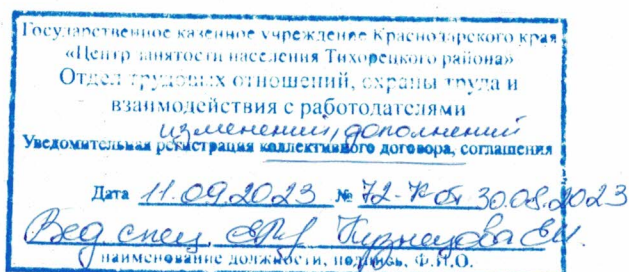 Государственное казенное учреждение Краснодарского края
«Центр занятости населения Тихорецкого района»
Отдел трудовых отношений, охраны труда и
взаимодействия с работодателями
изменений, дополнений
Уведомительная регистрация коллективного договора, соглашения
Дата 11.09.2023 № 72-К от 30.08.2023
Вед. спец. Кузнецова Е.И.
наименование должности, подпись, Ф.И.О.